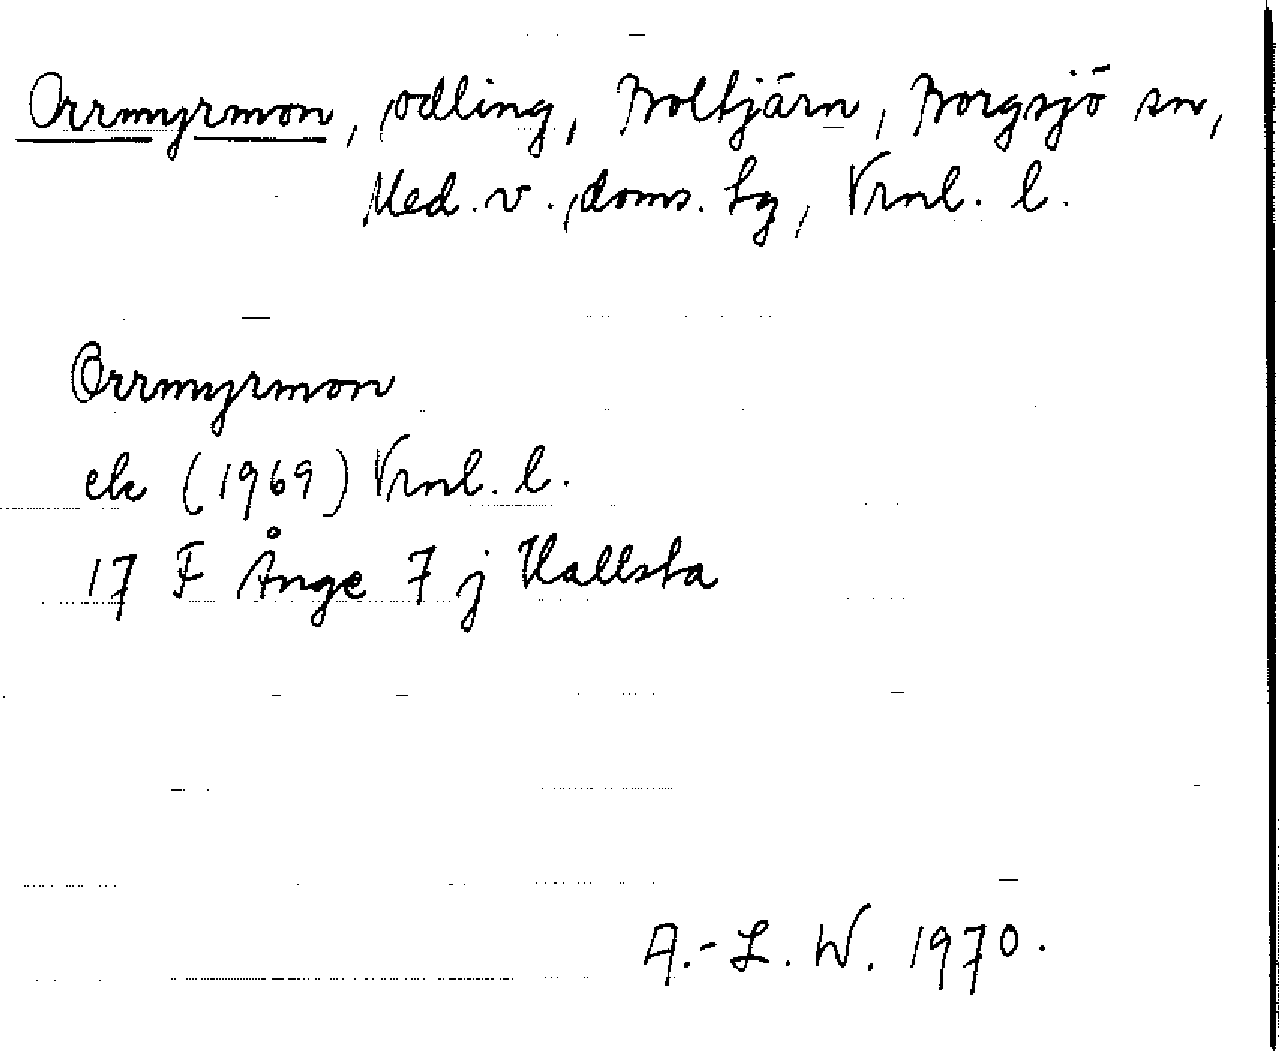 Orrmyrmon, odling, Boltjärn, Borgsjö sn,
Med. v. doms. tg, Vrnl. l.
Orrmyrmon
ek (1969) Vrnl. l.
17 F Ånge 7 j Hallsta
A.-L. W. 1970.